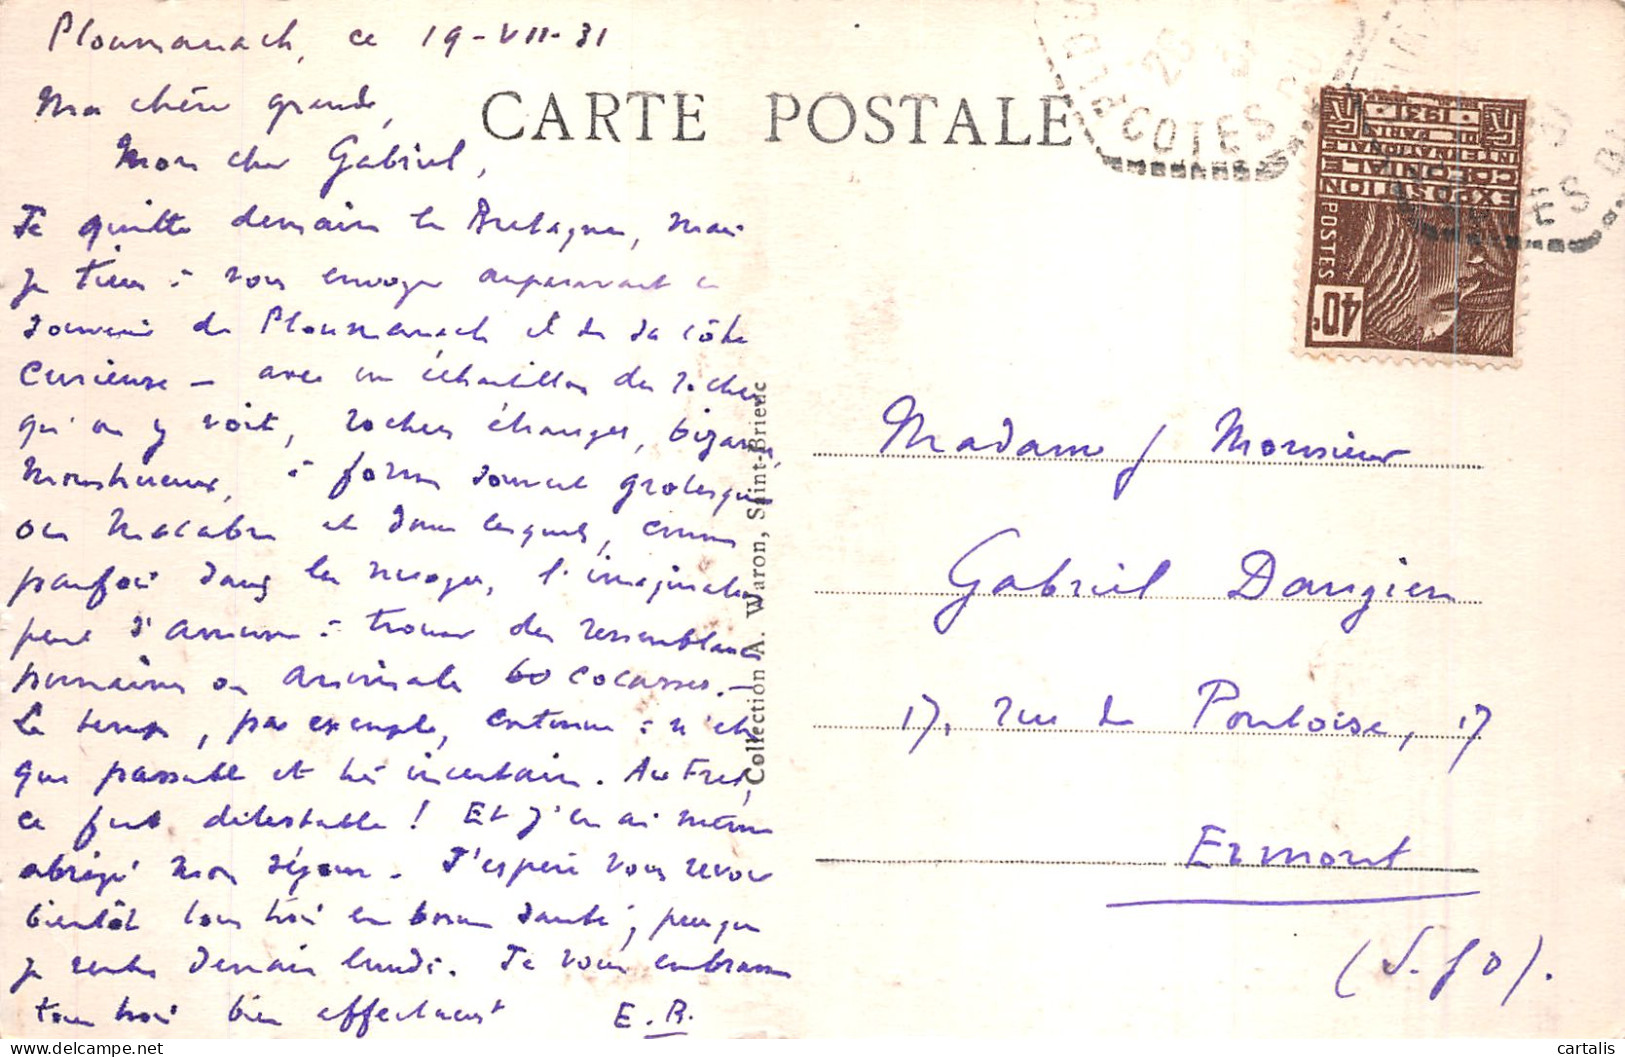 Ploumanach, ce 19-VII-31
Ma chère grande,
Mon cher Gabriel,
Je quitte demain la Bretagne, mais
je tiens à vous envoyer auparavant ce
souvenir de Ploumanach et de sa côte
curieuse — avec un échantillon des rochers
qu'on y voit, rochers étranges, bizarres,
monstrueux, à forme souvent grotesque
ou macabre et dans lesquels, comme
parfois dans les nuages, l'imagination
peut s'amuser à trouver des ressemblances
humaines ou animales cocasses. —
Le temps, par exemple, continue à n'être
que passable et très incertain. Au Fret,
ce fut détestable ! Et j'en ai même
abrégé mon séjour. J'espère vous revoir
bientôt tous trois en bonne santé, puisque
je rentre demain lundi. Je vous embrasse
tous trois bien affectueust
E. R.
CARTE POSTALE
Collection A. Waron, Saint-Brieuc
COTES DU
COTES DU
EXPOSITION
COLONIALE
INTERNATIONALE
DE PARIS
· 1931 ·
POSTES
40c
Madame & Monsieur
Gabriel Dangien
17, rue de Pontoise, 17
Ermont
(S. & O).
cartalis